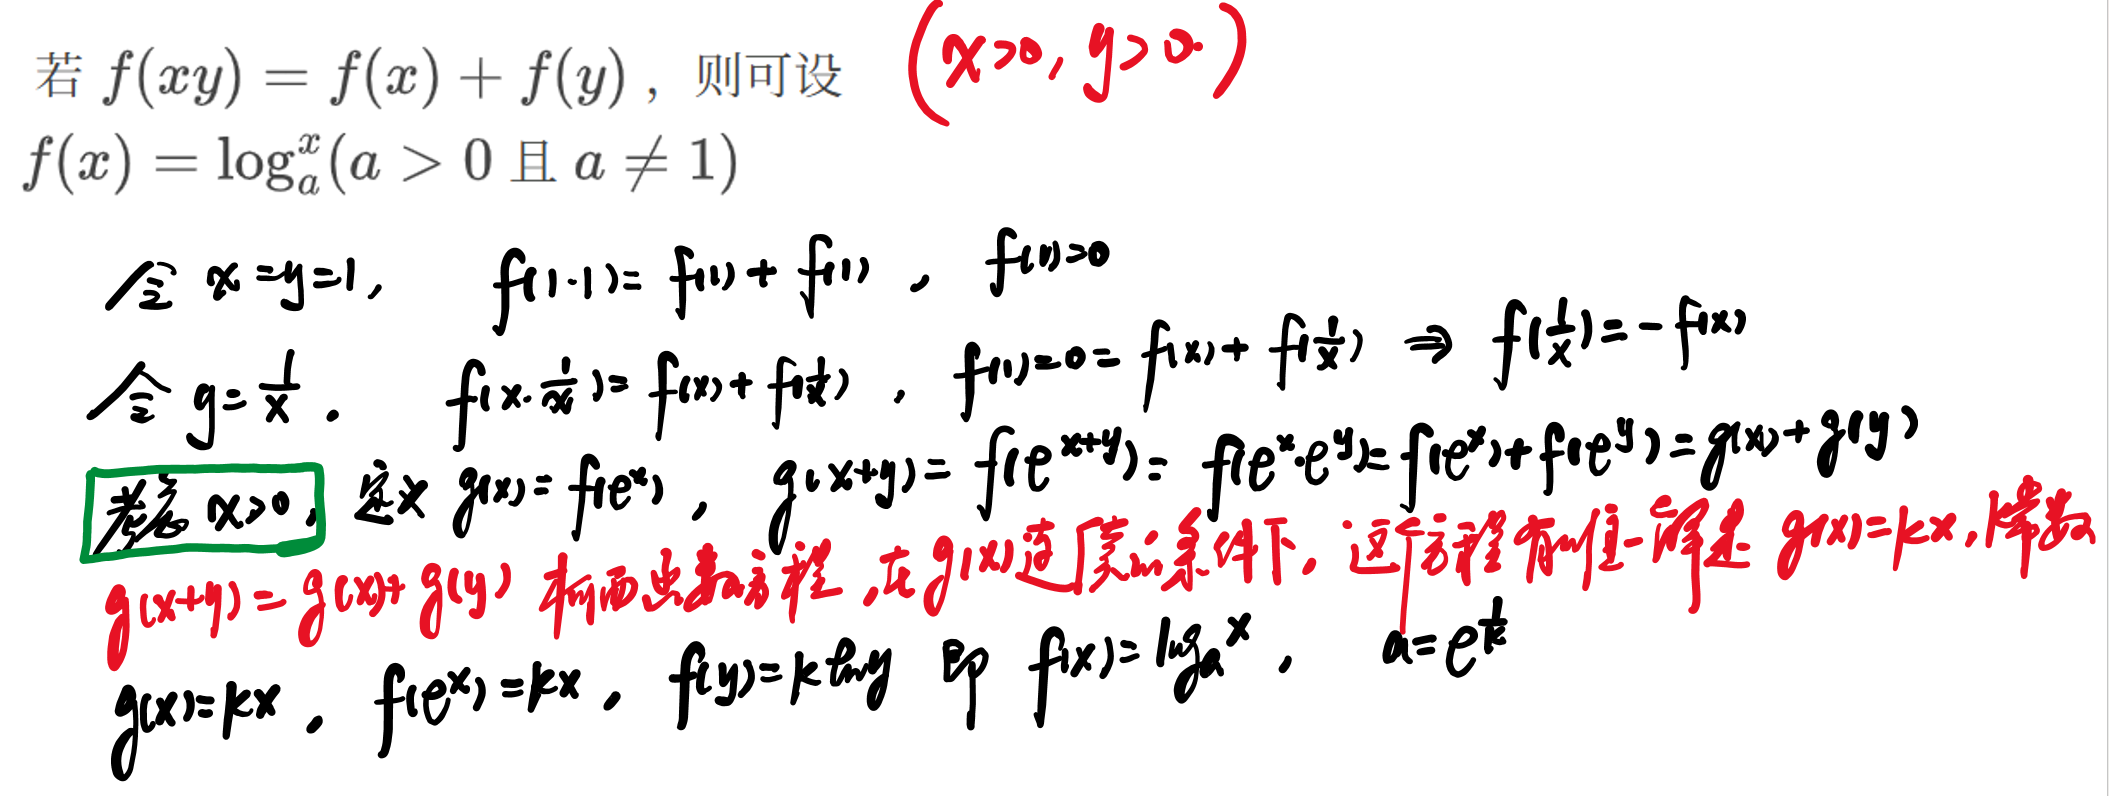 若 f(xy) = f(x) + f(y) ，则可设 (x>0, y>0)
f(x) = log_a^x (a > 0 且 a ≠ 1)
令 x=y=1, f(1·1)= f(1) + f(1) , f(1)=0
令 y=1/x . f(x·1/x)= f(x)+f(1/x) , f(1)=0= f(x)+ f(1/x) ⇒ f(1/x)=-f(x)
考虑 x>0, 定义 g(x)=f(e^x) , g(x+y)= f(e^{x+y})= f(e^x·e^y)=f(e^x)+f(e^y)=g(x)+g(y)
g(x+y)=g(x)+g(y) 柯西函数方程,在g(x)连续的条件下, 这个方程有唯一解是 g(x)=kx, k常数
g(x)=kx , f(e^x)=kx , f(y)=k lny 即 f(x)=log_a^x , a=e^{1/k}